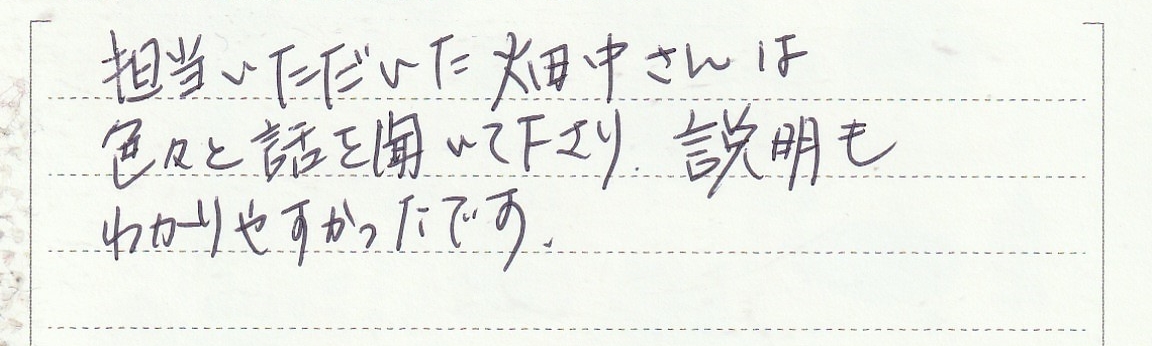 担当いただいた畑中さんは
色々と話を聞いて下さり、説明も
わかりやすかったです。